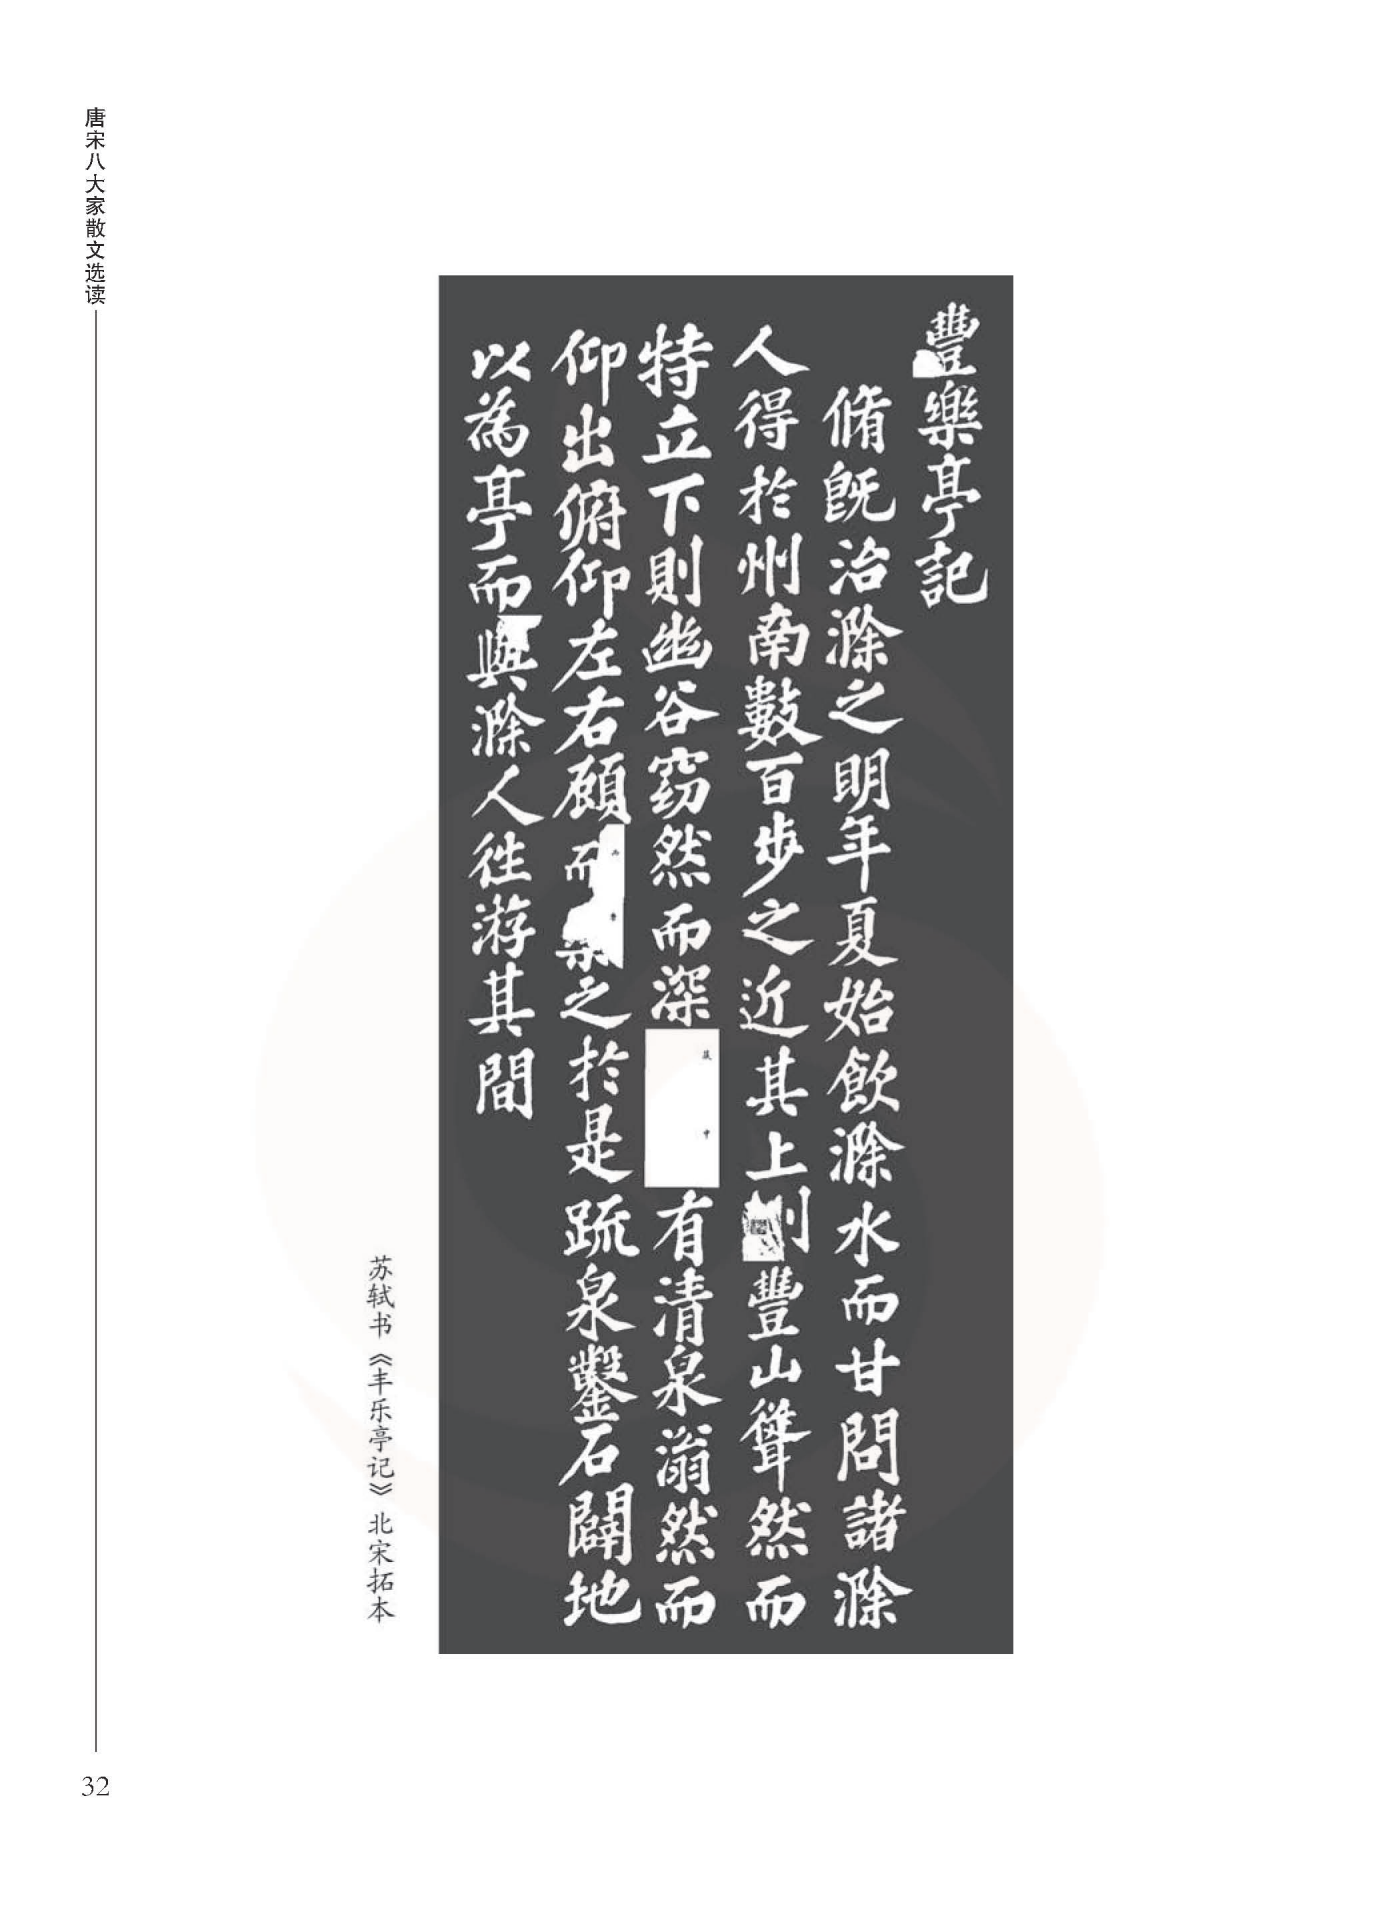 唐宋八大家散文选读
豐樂亭記
脩既治滁之明年夏始飲滁水而甘問諸滁
人得於州南數百步之近其上豐山聳然而
特立下則幽谷窈然而深有清泉滃然而
仰出俯仰左右顧而樂之於是疏泉鑿石闢地
以為亭而與滁人往游其間
苏轼书《丰乐亭记》北宋拓本
32